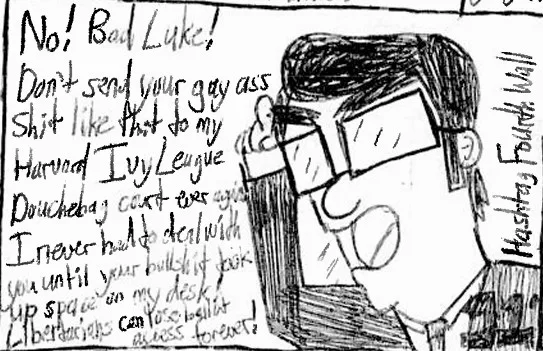 No! Bad Luke!
Don't send your gay ass
shit like that to my
Harvard Ivy League
Douchebag court ever again
I never had to deal with
you until your bullshit took
up space on my desk!
Libertarians can lose ballot
access forever!
Hashtag Fourth Wall